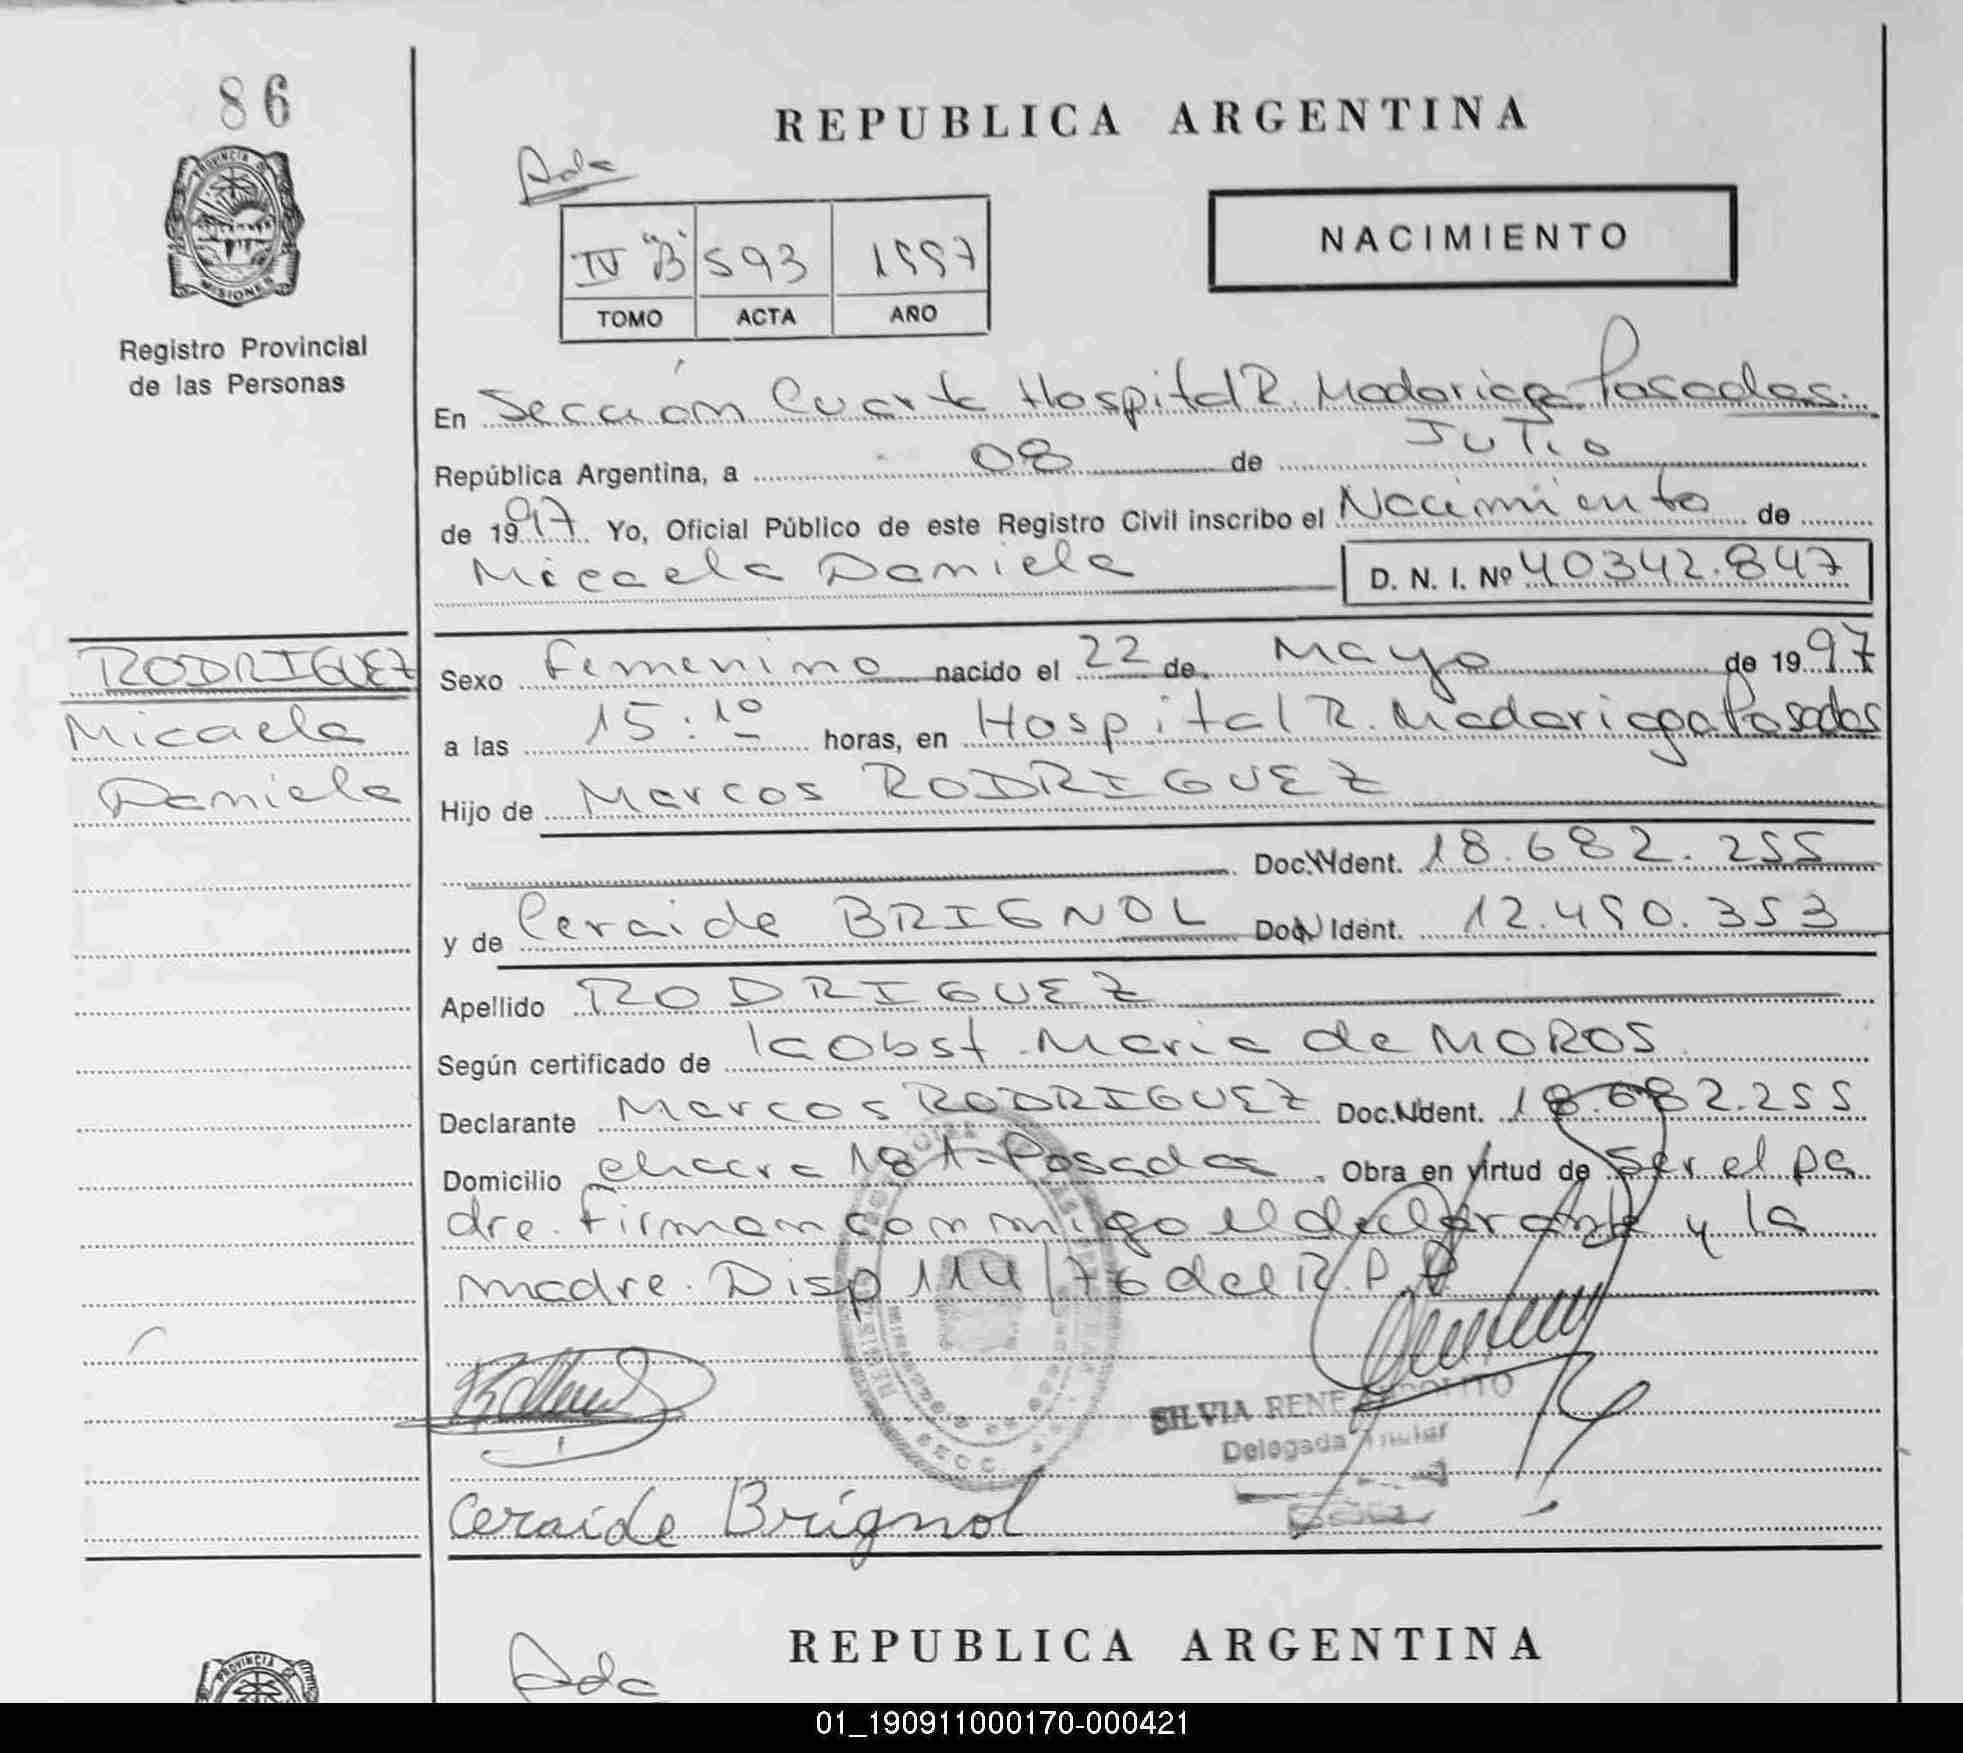 86
REPUBLICA ARGENTINA
PROVINCIA DE
MISIONES
Registro Provincial
de las Personas
Ada
IV "B" 593 1997
TOMO ACTA AÑO
NACIMIENTO
En Sección Cuarta Hospital R. Madariaga Posadas.
República Argentina, a 08 de Julio
de 1997 Yo, Oficial Público de este Registro Civil inscribo el Nacimiento de
Micaela Daniela D. N. I. Nº 40342.847
RODRIGUEZ
Micaela
Daniela
Sexo Femenino nacido el 22 de Mayo de 1997
a las 15:10 horas, en Hospital R. Madariaga Posadas
Hijo de Marcos RODRIGUEZ
Doc. Ident. 18.682.255
y de Ceraide BRIGNOL Doc. Ident. 12.490.353
Apellido RODRIGUEZ
Según certificado de la Obst. Maria de MOROS
Declarante Marcos RODRIGUEZ Doc. Ident. 18.682.255
Domicilio chacra 181-Posadas. Obra en virtud de Ser el pa
dre. Firman conmigo el declarante y la
madre. Disp 114/76 del R.P.P
SILVIA RENE
Delegada Titular
Ceraide Brignol
REPUBLICA ARGENTINA
PROVINCIA
Ada
01_190911000170-000421